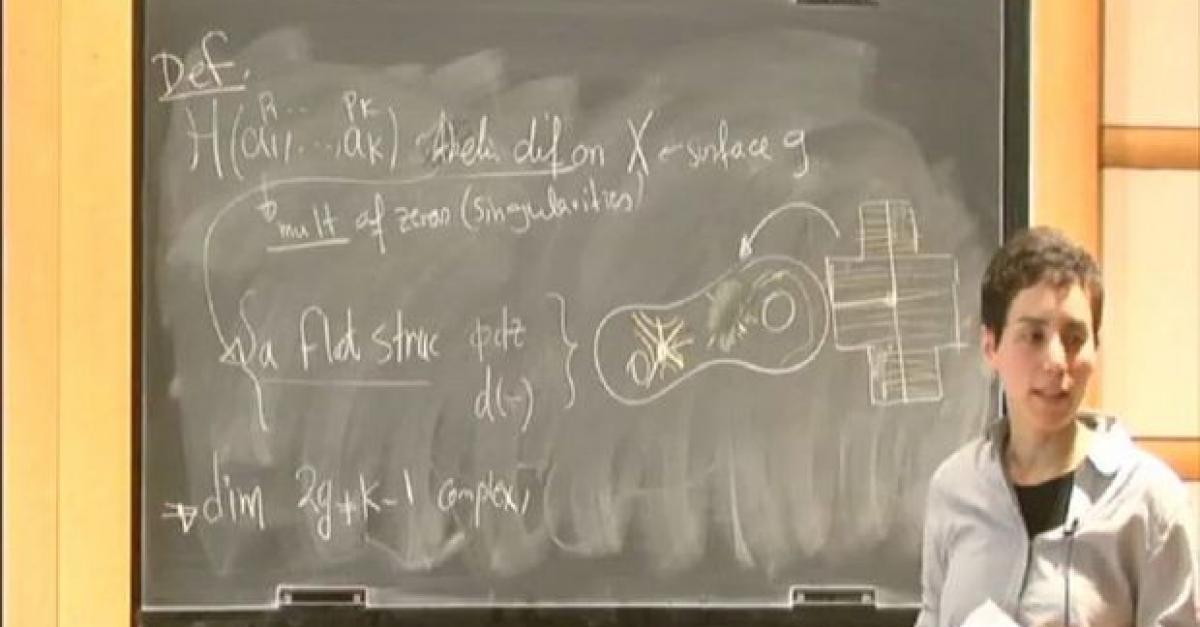 Def.
P₁ ... Pₖ
H(a₁, ..., aₖ) Abelian dif on X ← surface g
mult of zeros (singularities)
{a flat struc φdz }
d(-)
⇒ dim 2g+k-1 complex,